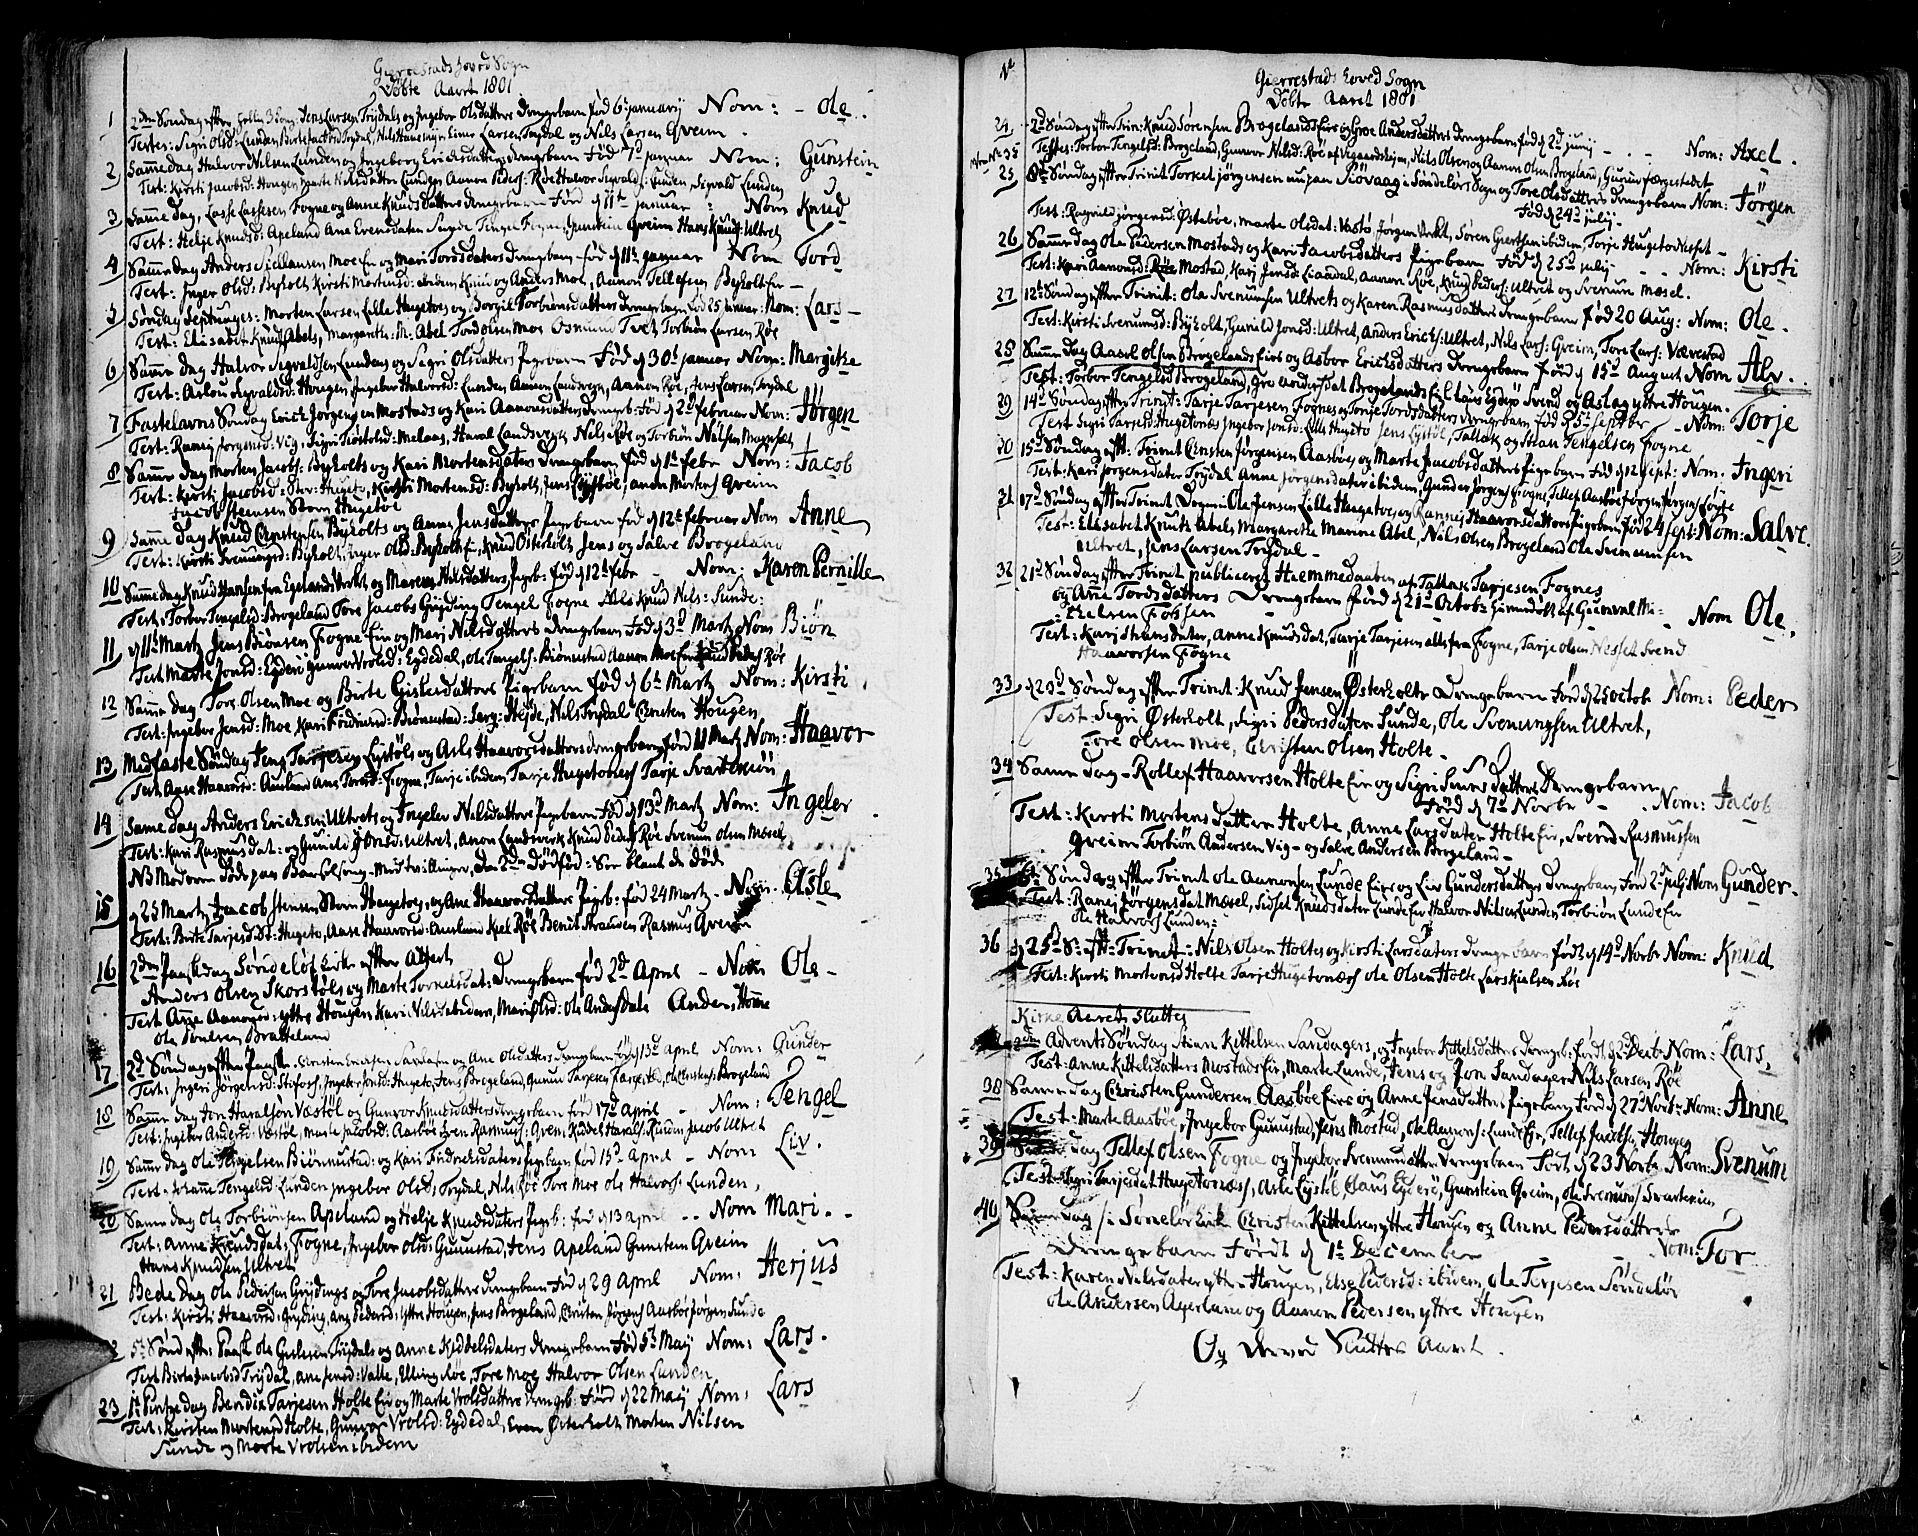 Gierrestads hoved Sogn
Døbte Aaret 1801
1 2den Søndag efter Jens Larsen Trydals og Ingebor Olsdatters drengebarn fød 6t januarij Nom: Ole.
Testes: Sigri Olsd: Lunden, Larsen Trydal og Nils Larsen Qveim.
2 Samme dag Halvor Nilsen Lunden og Ingeborg Erichsdatters drengebarn fød 7d januar Nom: Gunstein
Test: Kirsti Jacobsd: Hougen, Lunden Aanon Peders: Røe Halvor Sigvalds: Lunden, Sigvald Lunden
3 Samme dag, Lasse Lassesen Fogne og Anne Knudsdatters drengebarn fød d 11t januar Nom Knud
Test: Helje Knudsd: Apeland Ane Evensdatter Sunde Tengel Fogne, Gunstein Qveim Hans Knuds: Ultvet
4 Samme dag Anders Moe Eie og Mari Tordsdatters drengebarn fød d 11t januar Nom Tord
Test: Inger Olsd: Byholt Kirsti Mortensd: Knud og Anders Moe, Aanon Tellefsen Byholt Eie
5 Søndag Septuages: Morten Larsen Lille Hugetoes og Torbiørnsdatters drengebarn fød 25 januar: Nom: Lars
Test: Elisabet Knud Abels, Margarethe M. Abel Tord Olsen Moe Osmund Tvet Torbiør Larsen Røe
6 Samme dag Halvor Sigvaldsen Lundens og Sigri Olsdatters Pigebarn fød d 30t januar Nom: Margithe
Test: Aslou Sigvaldsd: Hougen, Ingebor Halvorsd: Lunden Aanon Landsverk, Aanon Røe, Jens Larsen Trydal
7 Fastelavns Søndag Erich Jørgensen Mostads og Kari Aanonsdatters drengeb: fød d 2d februar Nom: Jørgen
Test: Ranej Jørgensd: Vig, Sigri Tiøstolsd: Melaas, Haral Landsverk Nils Røe og Torbiør Nilsen
8 Samme dag Morten Jacobs: Byholts og Kari Mortensdaters drengebarn fød d 1t febr Nom: Jacob
Test: Kirsti Jacobsd: Stor: Hugeto, Kirsti Mortensd: Byholt, Jens Lystøl, anon Mortens: Qveim
Jacob Stensen Storre Hugetoe
9 Samme dag Knud Christensen Byholts og Anne Jensdatters Pigebarn fød d 12t februar Nom Anne
Test: Kirsti Svenungsd: Byholt, inger Olsd: Byholt E, Knud Østerholt Jens og Salve Brogeland
10 Samme dag Knud Hansen fra Egelands Verkt og Maren Nilsdatters Pigeb: fød d 12t febr Nom: Karen Pernille
Test: Torbor Tengelsd: Brogeland Tore Jacobs Gryding Tengel Fogne Nils Knud Nils: Sunde:
11 d 11t Martz Jens Biønsen Fogne Eie og Marj Nilsdatters drengebarn fød d 3d Martz Nom Biøn
Test Marte Jonsd: Egderi Gunvor Vrolsd: Egdedal, Ole Tengels: Biønnestad Aanon Moe Røe
12 Samme dag Tore Olsen Moe og Birte Giskesdatters Pigebarn fød d 6t Martz Nom: Kirsti
Test: Ingebor Jensd: Moe Kari Biønestad: Heyde, Nils Trydal Christen Hougen
13 Midfaste Søndag Jens Tarjesen Lystøls og Asls Haavorsdatters drengebarn fød 11 Martz Nom: Haavor
Test, Aase Haavorsd: Auslund Ane Torsd: Fogne, Tarje ibidem, Tarje Hugetonesf Tarje Svartemiør
14 Same dag Anders Erichsen Ultvets og Ingeler Nilsdatters Pigebarn fød d 13d Martz Nom: Ingeler
Test: Kari Rasmusdat: og Gunild Jonsd: Ultvet, anon Landsverk Knud Peders Røe Svenum Olsen Mæsel
NB Moderen døde paa Barselseng – Med tvillinger, den 2den Dødfød: See blant de døde
15 d 25 Martz Jacob Stensen Storre Hugetoes, og Ane Haavorsdatters Pigeb: fød 24 Martz Nom. Asle
Test: Birte Tarjesd: St: Hugeto, Aase Haavorsd: Auslund Kjel Røe Benit Strausen Rasmus Qveim
16 2den Paaskdag Søndeløf Kirke efter Attest
Anders Olsen Skorstøls og Marte Tarnelsdat: Drengebarn fød 2d April Nom Ole
Test Anne Aanonsd: yttre Hougen Kari Nilsd ibidem, Mari Olsd: Ole Andersdate Anders Homme
Ole Poulsen Bratteland
17 2d Søndag efter Paask. Christen Erichsen og Ane Olsdatters drengebarn fød d 13d April Nom: Gunder
Test: Ingeri Jørgensd: Stifoss, Ingebor Jonsd: Hugeto, Jens Brogeland, Gunum Tarjesen Ole Christens: Brogeland
18 Samme dag Jon Haralsøn Vastøl og Gunvor Knudsdatters drengebarn fød 17d april Nom: Tengel
Test: Ingebor Andersd: Vastøl, Marte Jacobsd: Aasbøe Even Rasmus: Qven, Kiddel Harals: Jacob Ultvet
19 Samme dag Ole Tengelsen Biønnustad: og Kari Fredrichsdaters Pigebarn fød 15d April Nom Liv.
Test: Johanne Tengelsd: Lunden Ingebor Olsd, Trydal, Nils Røe Tore Moe Ole Halvors: Lunden,
20 Samme dag Ole Torbiønsen Apeland og Helje Knudsdaters Pigeb: fød d 13 april Nom Mari.
Test: Anne Knudsdat: Fogne, Ingebor Olsd: Gunustad, Jens Apeland Gunsten Qveim
Hans Knudsen Ultvet
21 Bede Dag Ole Pedersen Grydings og Tore Jacobsdatters drengebarn fød d 29 April Nom: Herjus
Test: Kirsti Haavorsd: Gryding, ang Pedersd: yttre Hougen, Jens Brogeland, Christen Jørgens Aasbøe Jørgen Sunde
22 5t Sønd efter: Paask Ole Gulesen Trydals og Anne Kiddelsdaters drengebarn fød 5t Maij Nom: Lars.
Test Birte Jacobsd Trydal, Ane Jensd: Valle, Elling Røe, Tore Moe Halvor Olsen Lunden
23 1t Pintse dag Bendix Tarjesen Holte Eie og Marte Vrolsdatters drengeb: fød d 22 Maij Nom: Lars
Test: Kirsten Mortensd Holte, Gunvor Vrolsd: Egdedal, Even Østerholt Morten Nilsen
Sunde og Morte Vrolsen ibidem
No Gierrestads hoved Sogn
Døbte Aaret 1801
24 2d Søndag efter Trin: Knud Sørensen Brogelands Eies og Groe Andersdatters drengebarn fød d 2d junij Nom: Axel.
Testes: Torbor Tengelsd: Brogeland, Gunvor Nilsd: Røe af Vegaardsheim, Nils Olsen og Aanon Olsen Brogland, Gunur færgestedet
25 8de Søndag efter Trinit Torkel Jørgensen Siøvaag i Søndeløvs Sogn og Tore Olsdatters drengebarn Nom: Jørgen
fød d 24d julij
Test: Ragnild Jørgensd: Østebøe, Marte Olsdat: Vastø, Jørgen Verkt, Søren Gierthsen ibidem, Tarje Hugeto Nesset
26 Samme dag Ole Pedersen Mostads og Kari Jacobsdatters Pigebarn fød d 25d julij Nom: Kirsti
Test: Kari Aanonsd: Røe Mostad, Karj Jensd: Liaadal, Aanon Røe, Knud Peders: Ultvet og Svenum Mæsel.
27 12t Søndag efter Trinit: Ole Svenumsen Ultvets og Karen Rasmusdatters drengebarn fød 20 Aug: Nom: Ole.
Test: Kirsti Svenumsd: Byholt, Gunild Jonsd: Ultvet, Anders Erichs: Ultvet, Nils Lars: Qveim, Tore Lars: Værestad
28 Samme dag Aasul Olsen Brogelands Eies og Asbor Erichsdatters drengebarn fød d 15d August Nom Alv.
Test: Torbor Tengelsd Brogeland, Gro Andersdat Brogelands Eie, Claus Eydsøe Svend og Aslag yttre Hougen.
29 14d Søndag efter Trinit: Tarje Tarjesen Fognes og Tonje Tordsdatters drengebarn fød d 5t septbr Nom: Torje
Test Sigri Tarjesd: Hugetones Ingebor Jonsd: Lille Hugeto Jens Lystøl, Tallak og Stian Tengelsen Fogne
30 15d Søndag eft: Trinit Christen Jørgensen Aasbøes og Marte Jacobsdatters Pigebarn fød d 12 Sept: Nom: Ingeri
Test: Kari Jørgensdater Trydal Anne Jørgensdater ibidem, Gunder Jørgens: Fogne Tellef Aasbøe Jørgen Jørgens: Løyte
31 17d Søndag efter Trinit Degnen Ole Jensen Lille Hugetoes og Rannej Haavorsdatters Pigebarn fød 24 sept: Nom: Salve.
Test: Elisabet Knuts: Abels, Margarethe Marine Abel, Nils Olsen Brogeland Ole Svenumsen
Ultvet, Jens Larsen Trydal
32 21d Søndag efter Trinit publiceret Hiemmedaaben af Tallak Tarjesen Fognes
og Ane Tordsdatters Drengebarn fød d 21d October himmedøbt af Gunvald Mi- Nom Ole.
chelsen Fossen
Test: Karj Hansdater, Anne Knudsdat, Tarje Tarjesen alle fra Fogne, Tarje Olsen Nesset Svend
Haavorsen Fogne
33 d 23d Søndag efter Trinit: Knud Jensen Østerholts Drengebarn fød d 25 octob Nom: Peder
Test: Sigri Østerholt, Sigri Pedersdater Sunde, Ole Svenungsen Ultvet,
Tore Olsen Moe, Christen Olsen Holte
34 Samme Dag – Rollef Haavorsen Holte Eie og Sigri datters Drengebarn
fød d 7d Novbr Nom: Jacob
Test: Kirsti Mortens datter Holte, Anne Larsdater Holte Eie, Svend Rasmusen
Qveim Torbiøn Andersen Vig – og Salve Andersen Brogeland
35 6t Søndag efter Trinit Ole Aanonsen Lunde Eies og Liv Gundersdatters drengebarn fød 2 julj Nom Gunder.
Test: Ranej Jørgensdat Mæsel, Sidsel Knudsdater Lunde Eie Halvor Nilsen Lunden Torbiøn Lunde Eie
Ole Halvors Lunden:
36 d 25d S: eft: Trinit: Nils Olsen Holtes og Kirsti Larsdaters drengebarn fød d 14d Novbr Nom: Knud
Test: Kirsti Mortensd Holte Tarje Hugetonesf Ole Olsen Holte Lars Kielsen Røe
Kirke Aarets Slutter
2den Advents Søndag Stian Kittelsen Sandagers, og Ingebor Kittelsdatters drengeb: født d 2d Decbr Nom: Lars,
Test: Anne Kittelsdatters Mostads Eie, Marte Lunde, Jens og Jon Sandager Nils Larsen Røe
38 Samme dag Christen Gundersen Aasbøe Eies og Anne Jensdatters Pigebarn fød d 27 Novbr: Nom: Anne
Test: Marte Aasbøe, Ingebor Gunustad, Jens Mostad, Ole Aanons: Lunde Eie, Tellef Jacobs: Hougen
39 Samme dag Tellef Olsen Fogne og Ingebor Svenumdatters Drengebarn født d 23 Novbr Nom: Svenum
Test: Sigri Tarjesdat Hugetonesf, Asle Lystøl Claus Eydsøe, Gunstein Qveim, Ole Svenums: Svartemiør
40 Samme dag i Søneløv Kirke Christen Kittelsen yttre Hougen og Anne Pedersdatters
Drengebarn født d 1t December Nom: Tor
Test: Karen Nilsdater yttre Hougen, Else Pedersd: ibidem, Ole Terjesen Søndeløv
Ole Andersen Agerland og Aanon Pedersen yttre Hougen
Og derved Sluttes Aaret.